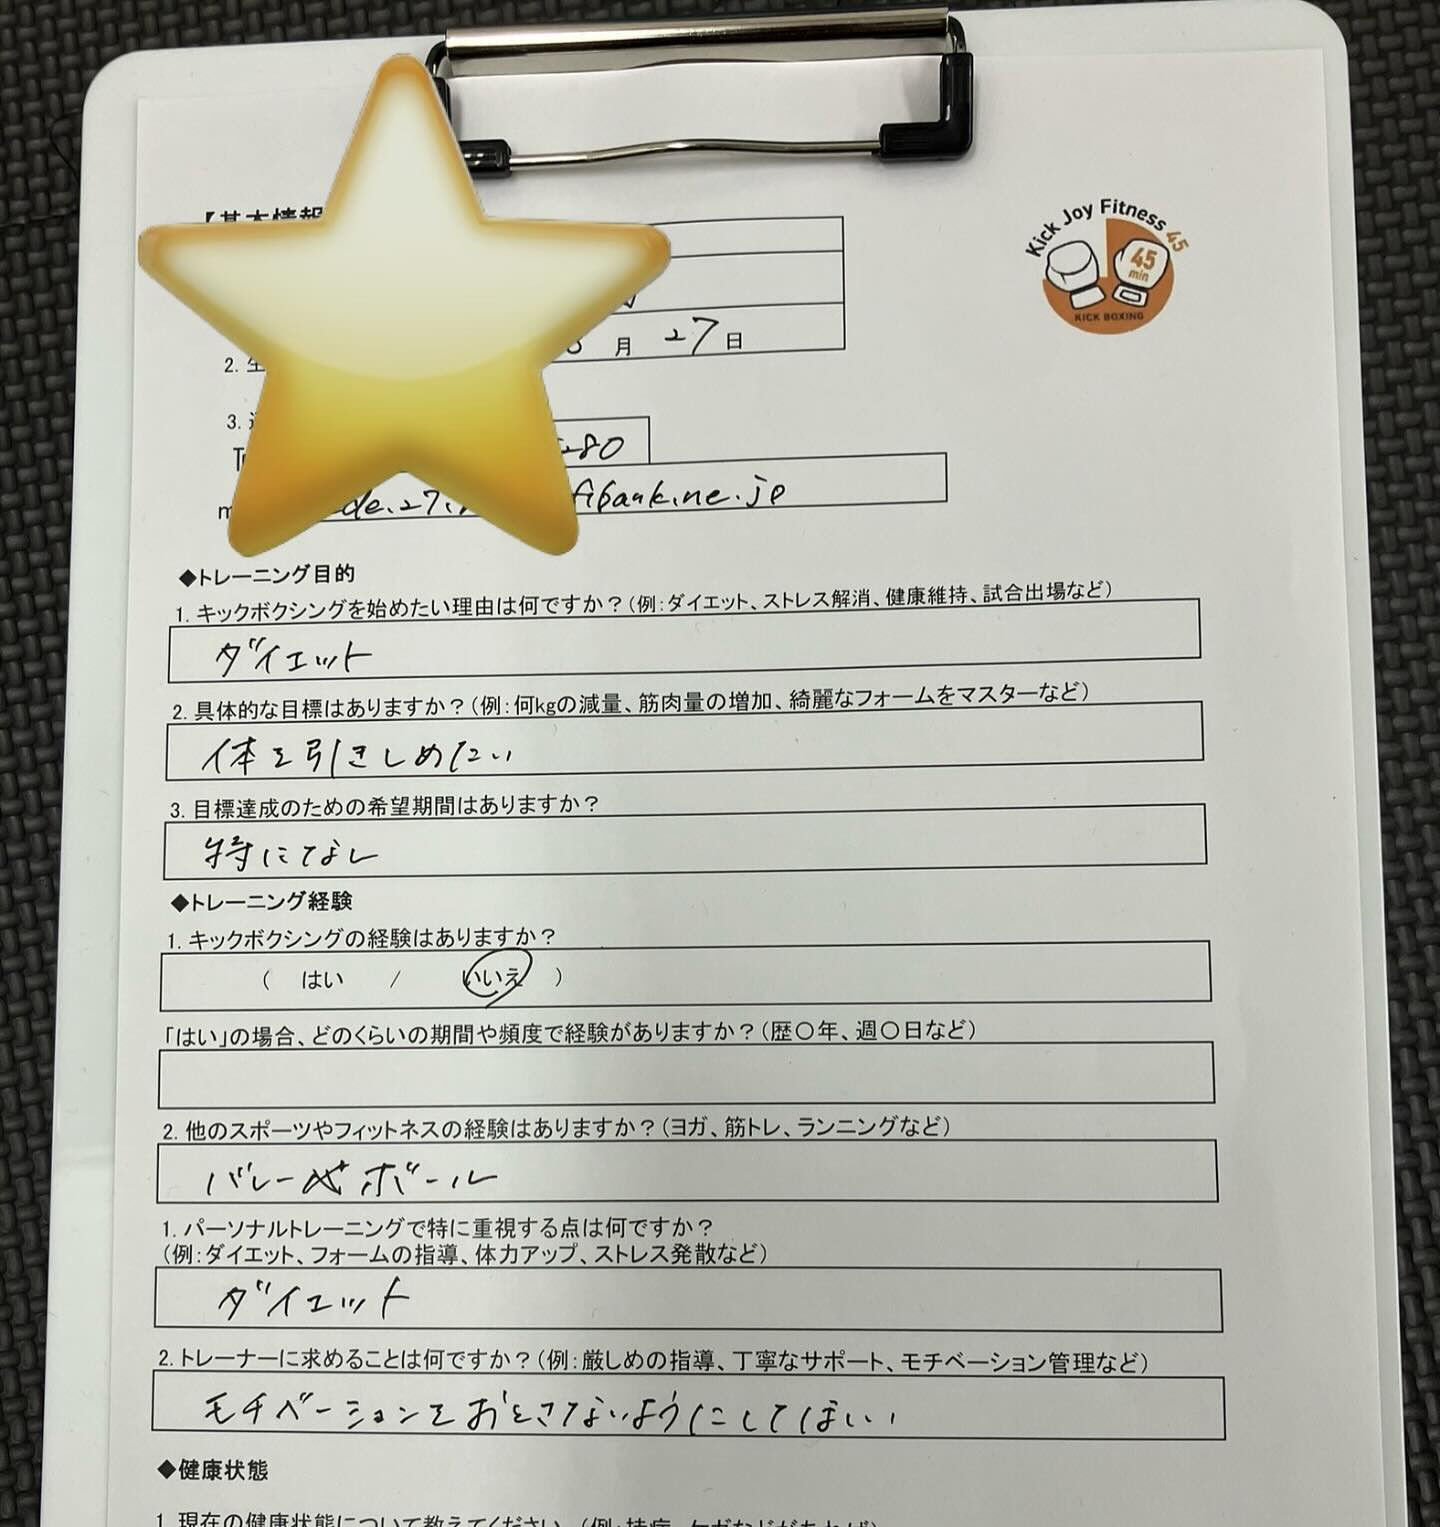 【基本情報
Kick Joy Fitness 45
45
min
KICK BOXING
月 27日
2. 生
3.
280
de.27. fibank.ne.jp
◆トレーニング目的
1. キックボクシングを始めたい理由は何ですか？(例：ダイエット、ストレス解消、健康維持、試合出場など)
ダイエット
2. 具体的な目標はありますか？(例：何kgの減量、筋肉量の増加、綺麗なフォームをマスターなど)
体を引きしめたい
3. 目標達成のための希望期間はありますか？
特になし
◆トレーニング経験
1. キックボクシングの経験はありますか？
( はい / いいえ )
「はい」の場合、どのくらいの期間や頻度で経験がありますか？(歴〇年、週〇日など)
2. 他のスポーツやフィットネスの経験はありますか？(ヨガ、筋トレ、ランニングなど)
バレーボール
1. パーソナルトレーニングで特に重視する点は何ですか？
(例：ダイエット、フォームの指導、体力アップ、ストレス発散など)
ダイエット
2. トレーナーに求めることは何ですか？(例：厳しめの指導、丁寧なサポート、モチベーション管理など)
モチベーションをおとさないようにしてほしい
◆健康状態
1. 現在の健康状態について教えてください。(例：持病、ケガなどがあれば)